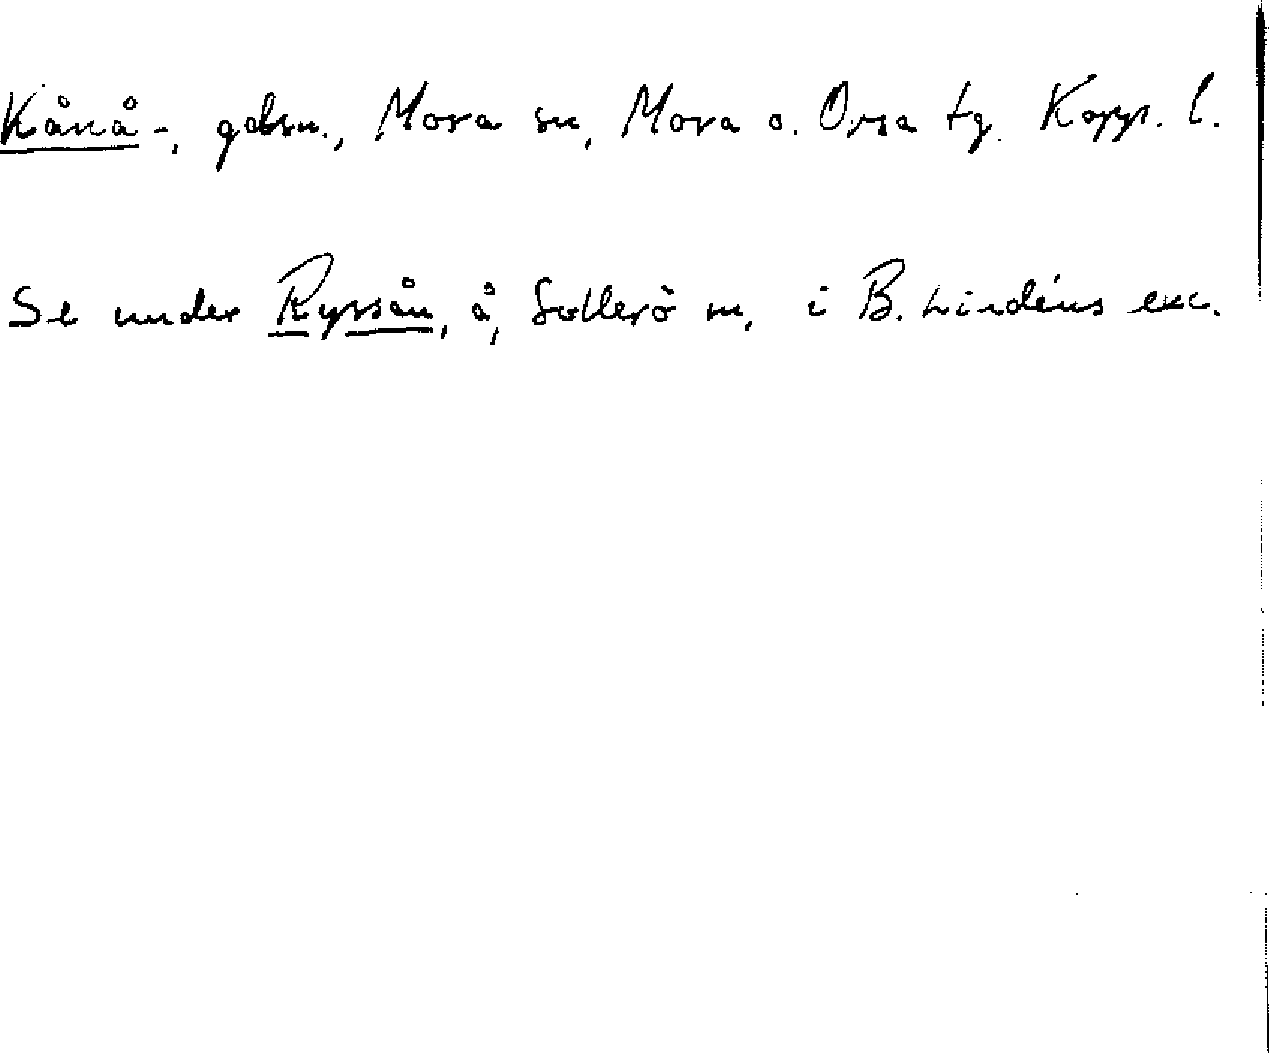 Kånå-, gdsn., Mora sn, Mora o. Orsa tg. Kopp. l.
Se under Ryssån, å, Sollerö sn, i B. Lindéns exc.